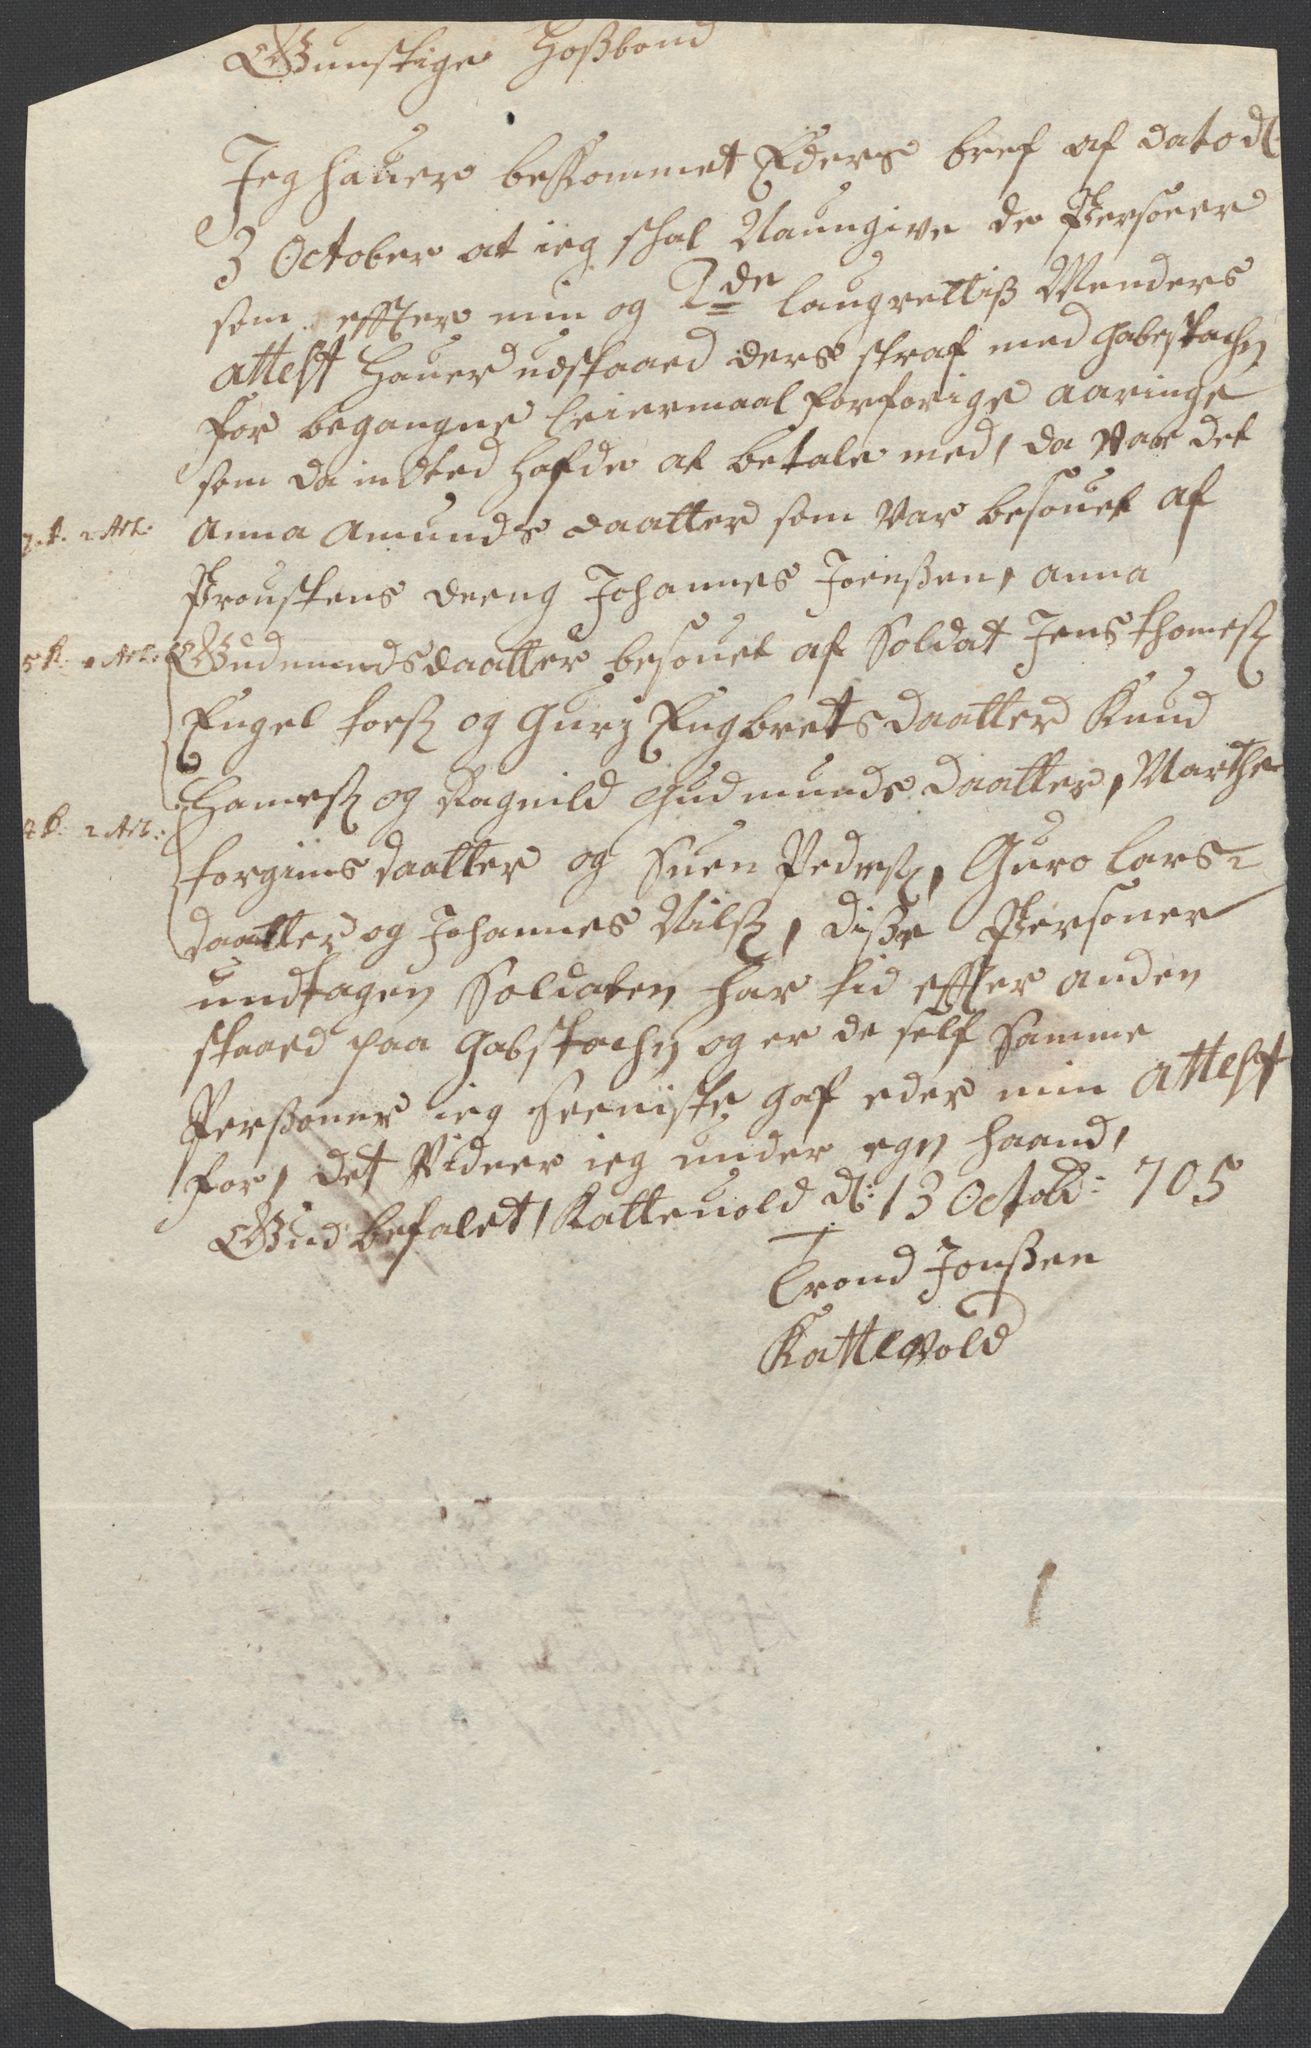 Gunstige Hoßbond
Jeg hauer bekommet Eders bref af dato dl
3 October at ieg skal Naungive de Personer
som effter min og 2de laugrettiß Menders
attest Hauer udstaaed ders straf med Gabestochen
for begangne leiermaal forforige aaringe
som da indted Hafde at betale med, da var det
Anna Amunds daatter som var besouet af
Proustens dreng Johannes Joenßen, Anna
Gudmundsdaatter besouet af Soldat Jens thomesß
Engel toesß og Gurj Engbrets daatter Knud
Hanesß og Ragnild Gudmunds daatter, Marthe
torgiuns daatter og Suen Pedersß, Guro lars
daatter og Johannes Nilsß, disße Personer
undtagen Soldaten har tid effter anden
staaed paa Gabstochen og er de self Samme
Perßoner ieg Seeniste gaf eder min attest
for, det Vidner ieg under egen haand,
Gud befalet, Kattevold dl: 13 Octobr: 705
Trond Jonßen
Kattevold
2 Art:
5 R: Art:
2 Art: